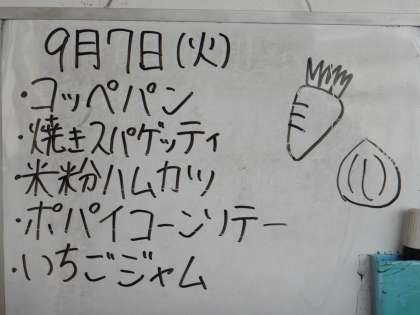 9月7日(火)
・コッペパン
・焼きスパゲッティ
・米粉ハムカツ
・ポパイコーンソテー
・いちごジャム